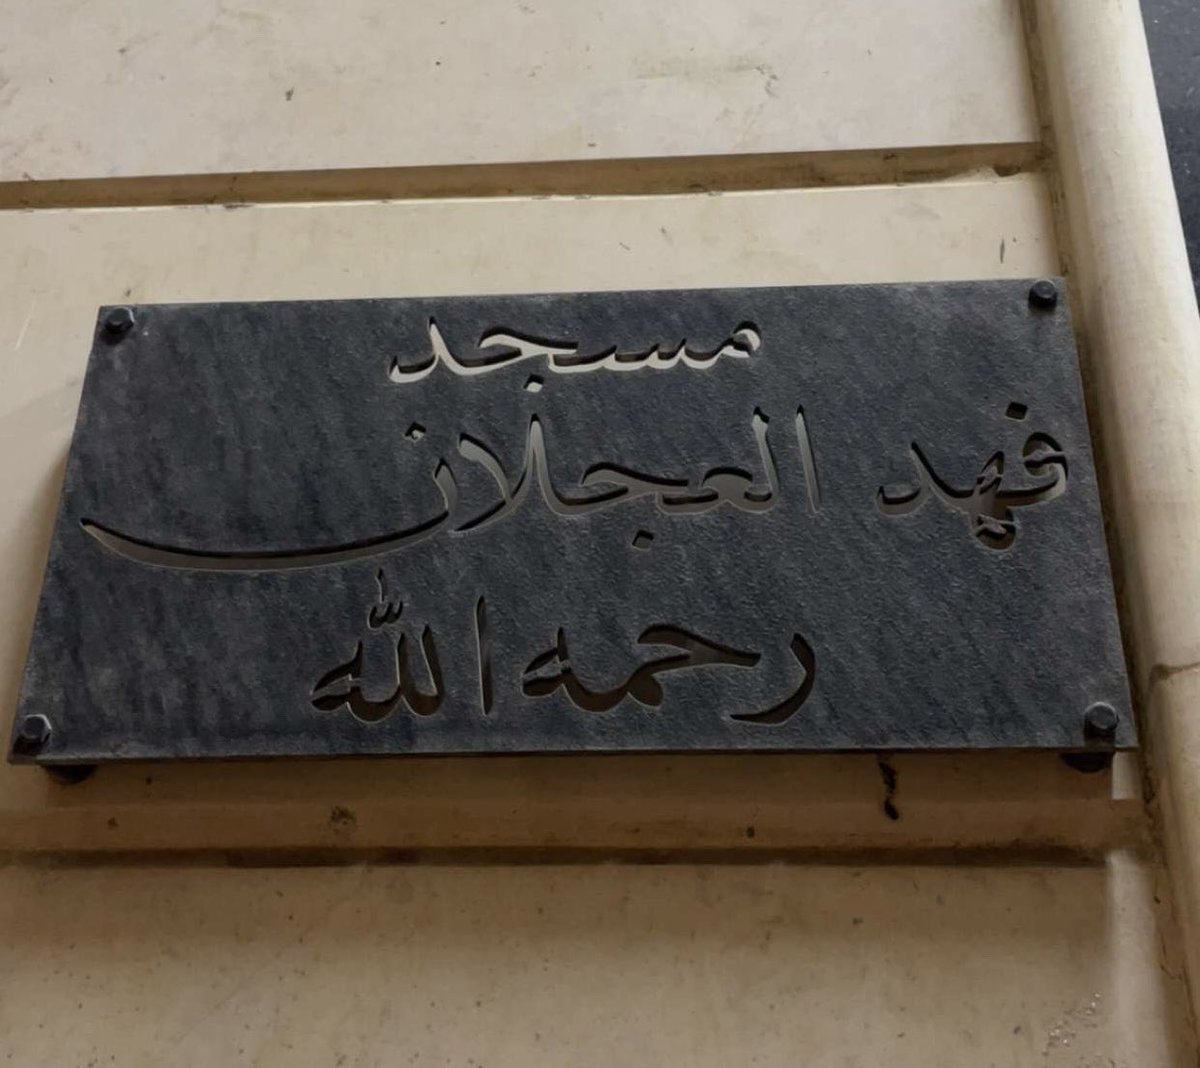 مسجد
فهد العجلان
رحمه الله